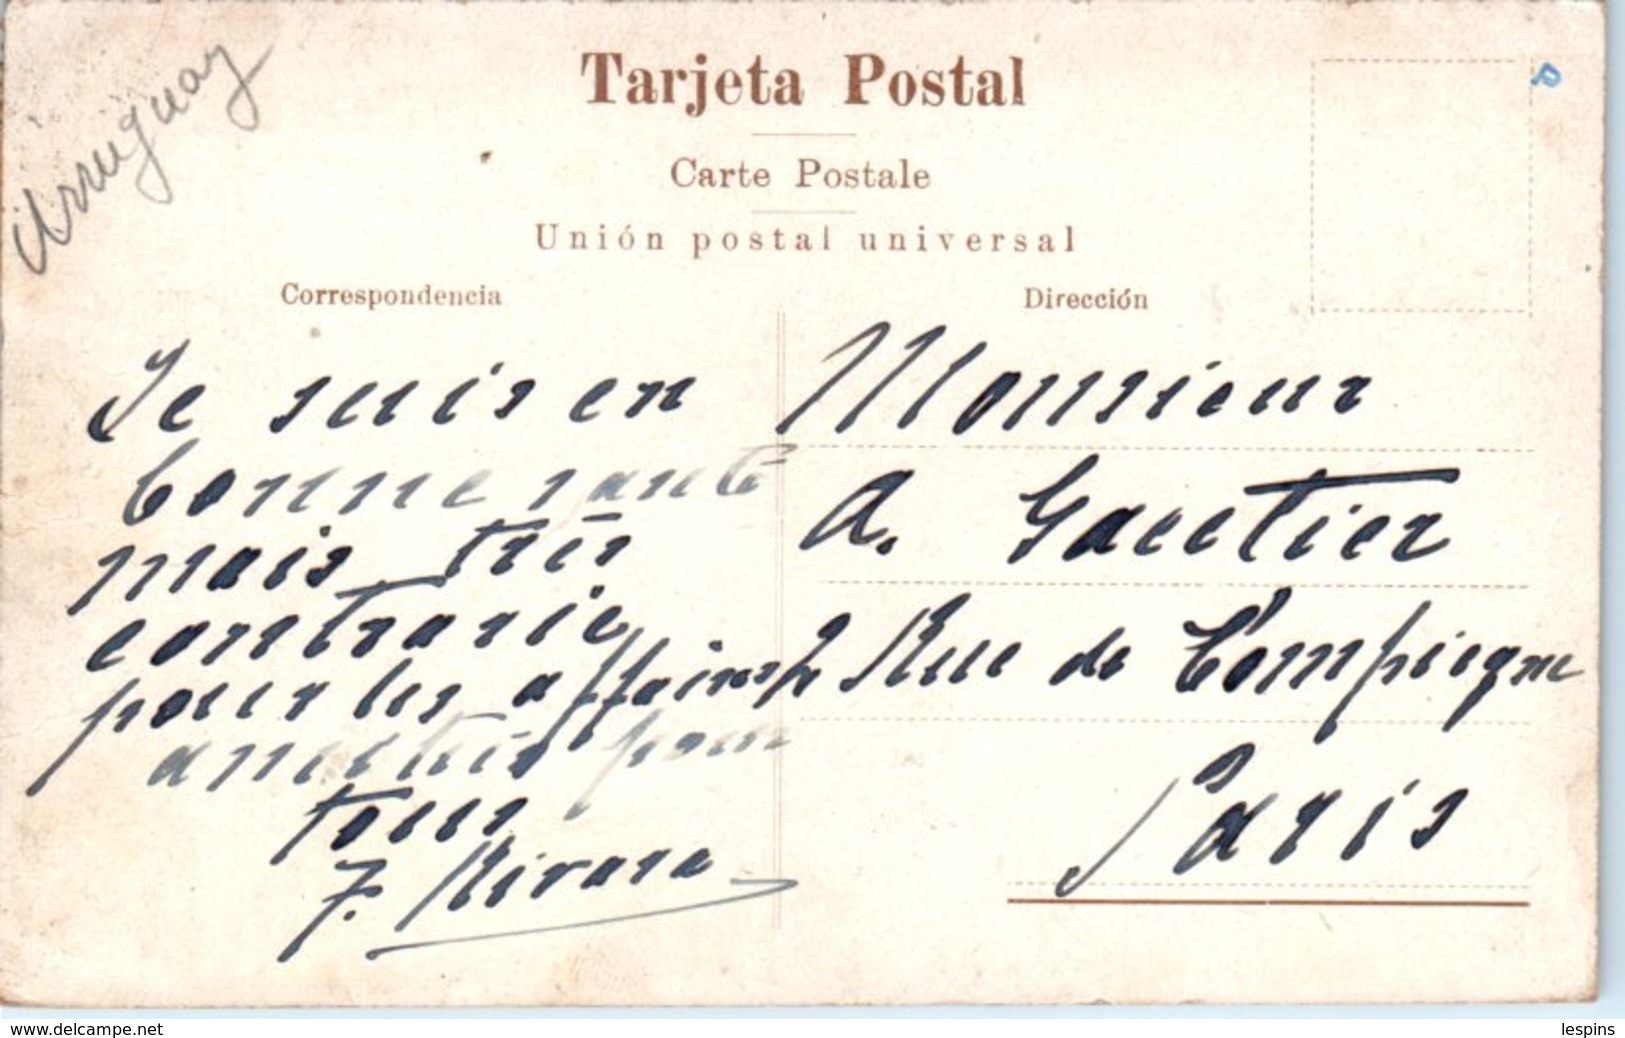 Uruguay
Tarjeta Postal
Carte Postale
Unión postal universal
Correspondencia
Je suis en
bonne santé
mais très
contrarié
pour les affaires
amitiés pour
tous
J. Rivara
Dirección
Monsieur
A. Gautier
2 Rue de Compiegne
Paris
www.delcampe.net
lespins